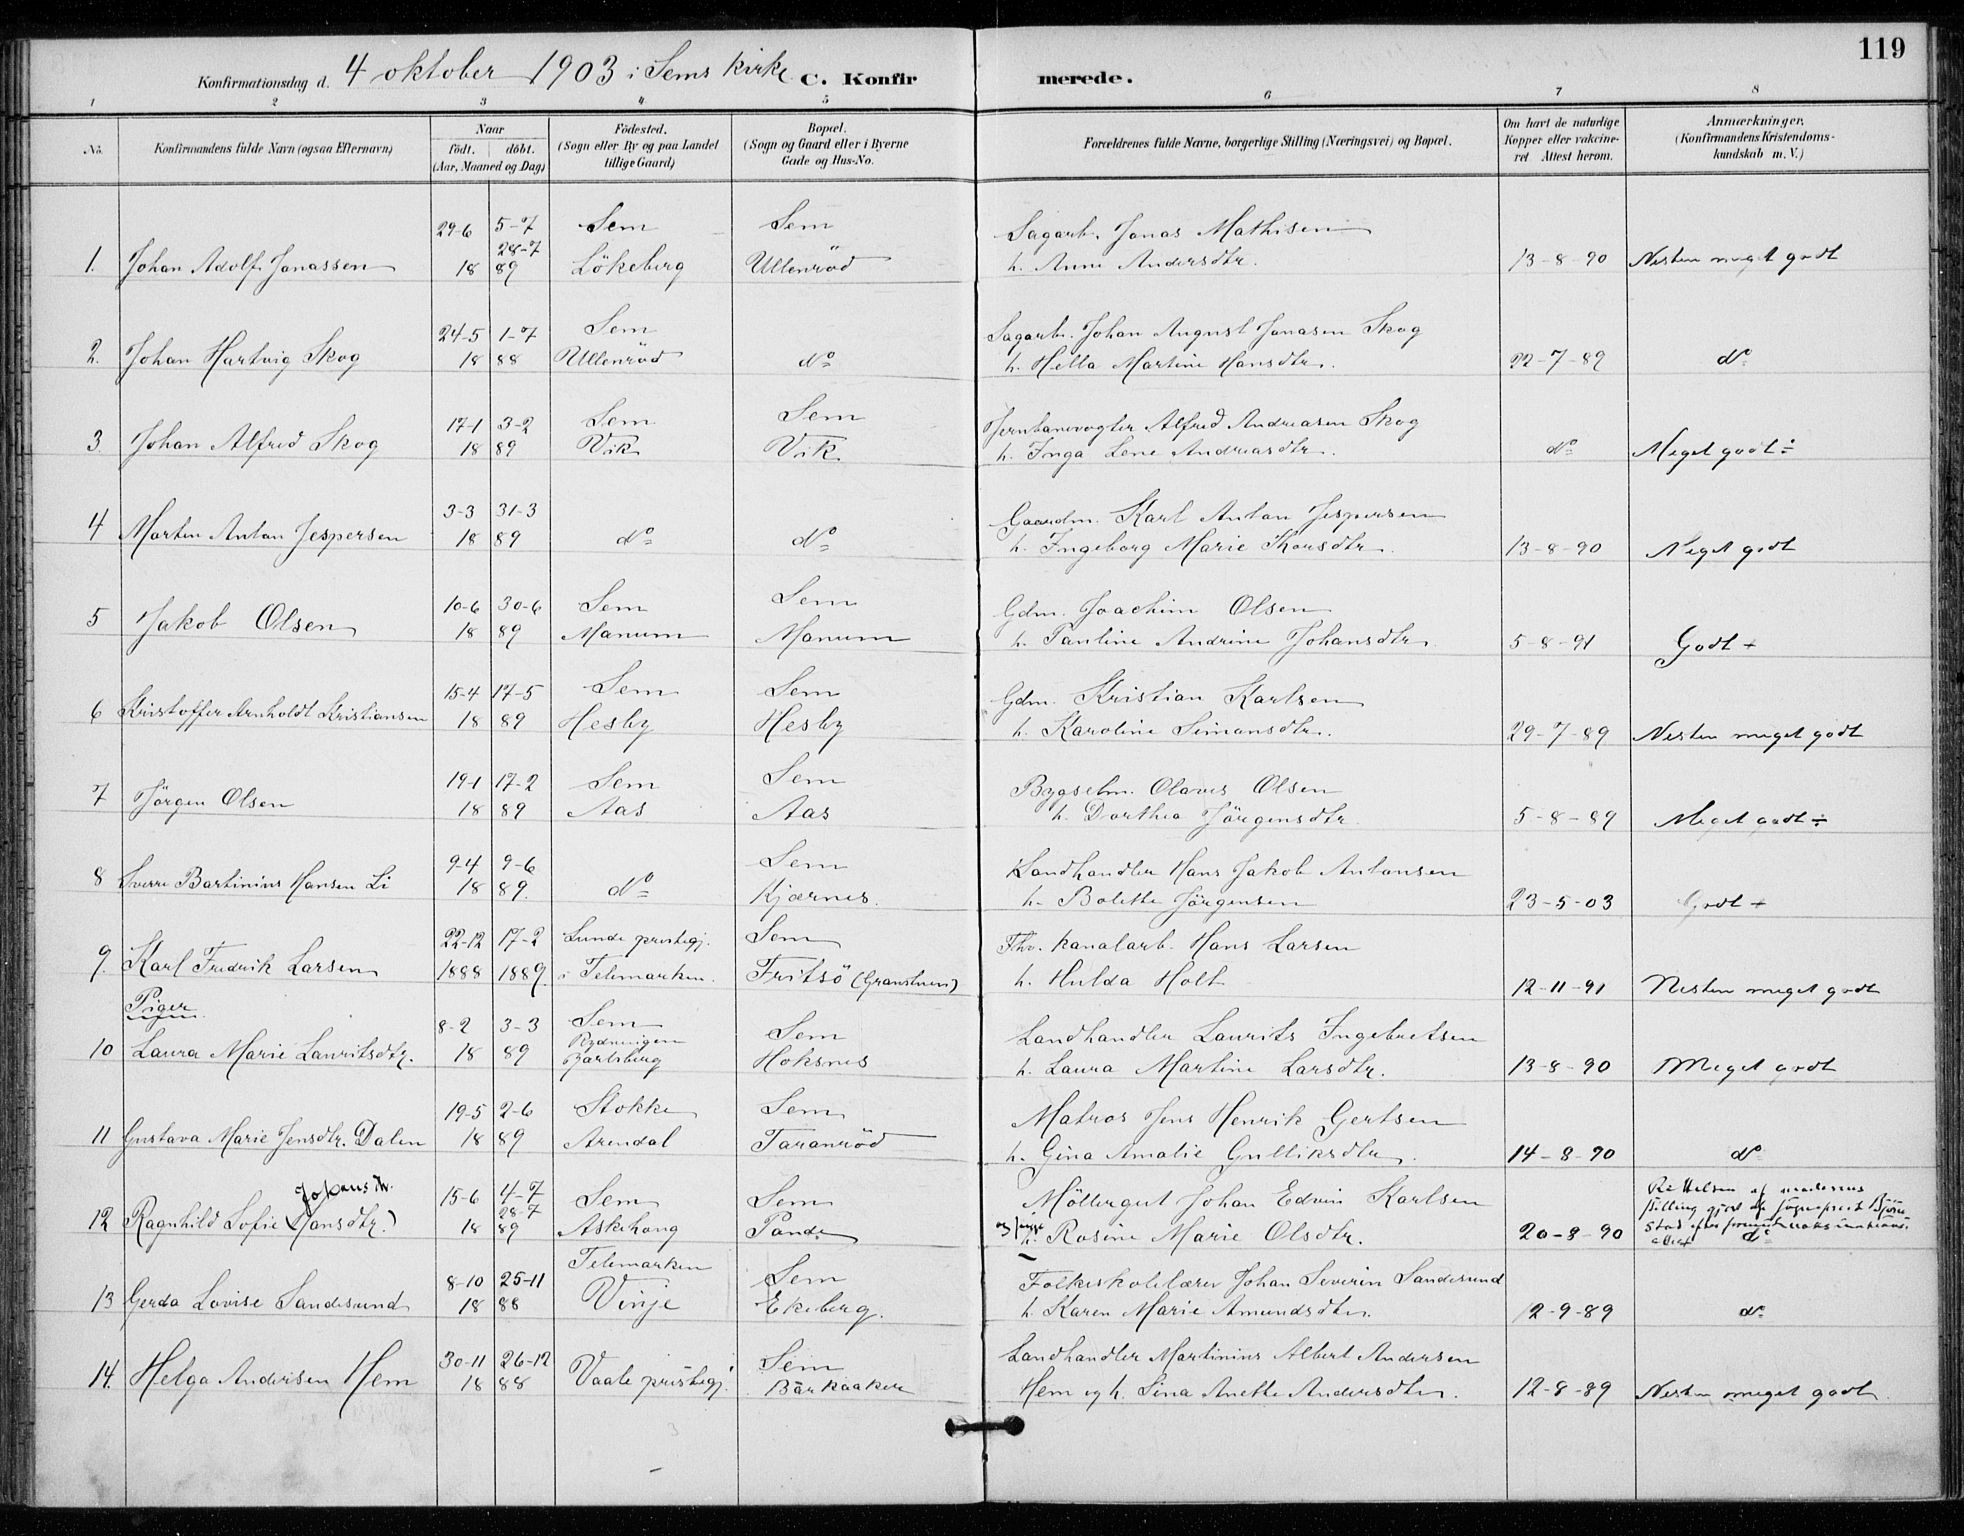 119
Konfirmationsdag d. 4 oktober 1903 i Sems kirke C. Konfirmerede.
1 2 3 4 5 6 7 8
No. Konfirmandens fulde Navn (ogsaa Efternavn) Naar født. døbt. (Aar, Maaned og Dag) Fødested. (Sogn eller By og paa Landet tillige Gaard) Bopæl. (Sogn og Gaard eller i Byerne Gade og Hus-No. Forældrenes fulde Navne, borgerlige Stilling (Næringsvei) og Bopæl. Om havt de naturlige Kopper eller vakcineret Attest herom. Anmærkninger, (Konfirmandens Kristendomskundskab m. V.)
29-6 5-7 Sem Sem Sagarb. Jonas Mathisen
28-7
1. Johan Adolf Jonassen 18 89 Lökeberg Ullenröd h. Anne Andersdtr. 13-8-90 Nesten meget godt
24-5 1-7 Sem Sagarb. Johan August Jonasen Skog
2. Johan Hartvig Skog 18 88 Ullenröd do h. Hella Martine Hansdtr. 22-7-89 do
17-1 3-2 Sem Sem Jernbanevogter Alfred Andreasen Skog
3. Johan Alfred Skog 18 89 Vik Vik h. Inga Lene Andreasdtr. do Meget godt ÷
3-3 31-3 Gaardm. Karl Anton Jespersen
4 Morten Anton Jespersen 18 89 do do h. Ingeborg Marie Thorsdtr. 13-8-90 Meget godt
10-6 30-6 Sem Sem Gdm. Joachim Olsen
5 Jakob Olsen 18 89 Manum Manum h. Pauline Andrine Johansdtr. 5-8-91 Godt +
15-4 17-5 Sem Sem Gdm. Kristian Karlsen
6 Kristoffer Arnholdt Kristiansen 18 89 Hesby Hesby h. Karoline Simonsdtr. 29-7-89 Nesten meget godt
19-1 17-2 Sem Sem Bygselm. Olavus Olsen
7 Jörgen Olsen 18 89 Aas Aas h. Dorthea Jörgensdtr 5-8-89 Meget godt ÷
9-4 9-6 Sem Landhandler Hans Jakob Antonsen
8 Sverre Bartinius Hansen Li 18 89. do Kjærnes. h. Bolette Jörgensen 23-5-03 Godt +
22-12 17-2 Lunde prestegj. Sem Fhv. kanalarb. Hans Larsen
9. Karl Fredrik Larsen 1888 1889. i Telemarken. Fritsö (Granstuen) h. Hulda Holt 12-11-91 Nesten meget godt
Piger
8-2 3-3 Sem Sem Landhandler Laurits Ingebretsen
Rydningen
10 Laura Marie Lauritsdtr. 18 89 Barbsberg Hoksnes h. Laura Martine Larsdtr. 13-8-90 Meget godt
19-5 2-6 Stokke Sem Matros Jens Henrik Gertsen
11 Gustava Marie Jensdtr. Dalen 18 89 Arendal Taranröd h. Gina Amalie Gulliksdtr. 14-8-90 do
Johansdtr. 15-6 4-7 Sem Sem Möllergut Johan Edvin Karlsen Rettelsen af moderens
28-7 stilling gjort af sogneprest Bjönn
12 Ragnhild Sofie (Hansdtr.) 18 89 Askehaug Pande og pige h. Rosine Marie Olsdtr. 20-8-90 stad efter vaksinations attest do
8-10 25-11 Telemarken Sem Folkeskolelærer Johan Severin Sandesund
13 Gerda Lovise Sandesund 18 88 Vinje Ekeberg. h. Karen Marie Amundsdtr. 12-9-89 do
30-11 26-12 Sem Landhandler Martinius Albert Andersen
14. Helga Andersen Hem 18 88 Vaale prestegj. Barkaaker Hem og h. Sina Anette Andersdtr. 12-8-89 Nesten meget godt